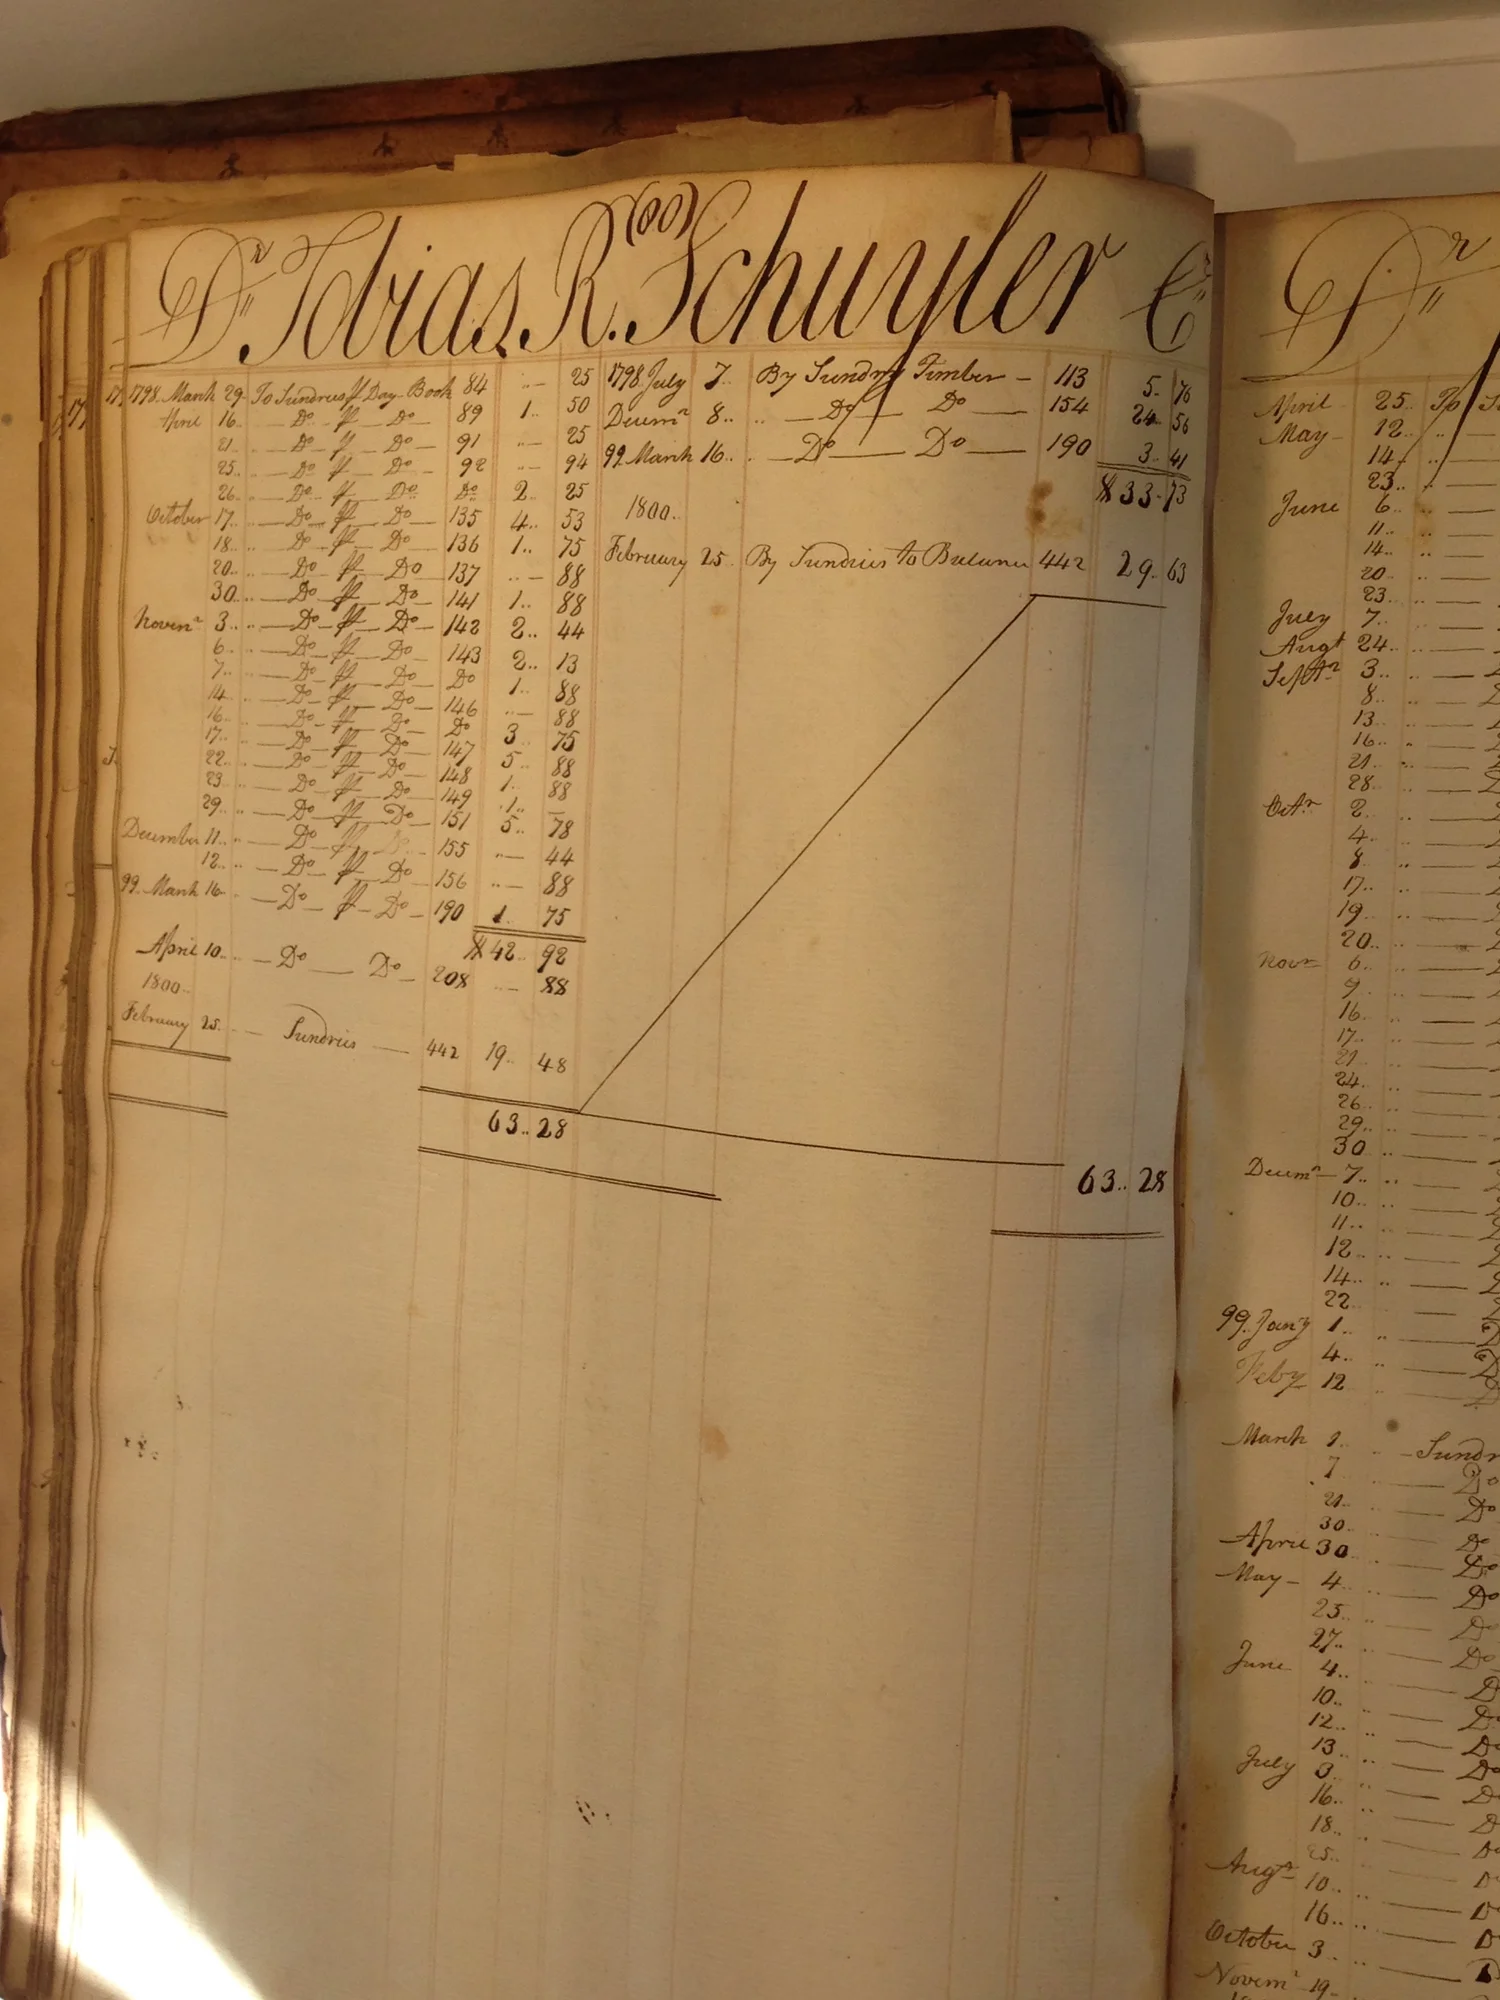 (00)
Dr Tobias. R. Schuyler Cr
1798. March 29. To Sundries pr Day Book 84 .. — 25
April 16 .. — Do pr Do 89 1.. 50
21 .. — Do pr — Do 91 .. — 25
25.. .. — Do pr — Do 92 .. — 94
26 .. — Do pr Do Do 2.. 25
October 17.. .. — Do — pr — Do 135 4.. 53
18.. .. — Do pr — Do 136 1.. 75
20.. .. — Do pr Do 137 .. — 88
30.. .. — Do pr Do 141 1.. 88
Novemr 3.. .. — Do pr — Do — 142 2.. 44
6.. .. — Do — pr — Do — 143 2.. 13
7.. .. — Do — pr — Do Do 1.. 88
14.. — Do — pr — Do — 146 .. — 88
16.. — Do — pr — Do Do 3.. 75
17.. — Do — pr — Do — 147 5.. 88
22.. — Do — pr — Do — 148 1.. 88
23.. — Do — pr — Do — 149 1.. —
29.. — Do — pr — Do — 151 5.. 78
December 11.. .. — Do — pr 155 .. — 44
12.. .. — Do pr Do 156 .. — 88
99. March 16. — Do — pr — Do — 190 1.. 75
$ 42.. 92
April 10.. — Do — Do — 208 .. — 88
1800..
February 25. — Sundries — 442 19.. 48
63.. 28
1798. July 7.. By Sundry Timber — 113 5. 76
Decemr 8.. .. — Do — Do — 154 24.. 56
99. March 16.. .. — Do — Do — 190 3.. 41
$ 33. 73
1800..
February 25. By Sundries to Balance 442 29. 63
63.. 28
Dr
April 25.. To
May — 12..
14..
23..
June 6..
11..
14..
20..
23..
July 7..
Augt 24..
Septr 3..
8..
13..
16..
21..
28..
Octr 2..
4..
8..
17..
19..
20..
Novr 6..
9..
16..
17..
21..
24..
26..
29..
30..
Decemr — 7..
10..
11..
12..
14..
22..
99. Jany 1..
4..
Feby 12
March 1.. — Sundr
7 — Do
21.. — Do
30.. — Do
April 30 — Do
May — 4.. — Do
25.. — Do
27.. — Do
June 4.. — D
10.. — D
12.. — Do
13.. — Do
July 3.. — D
16.. — D
18.. — Do
25.. — D
Augt 10.. — D
16.. — D
October 3..
Novemr 19..